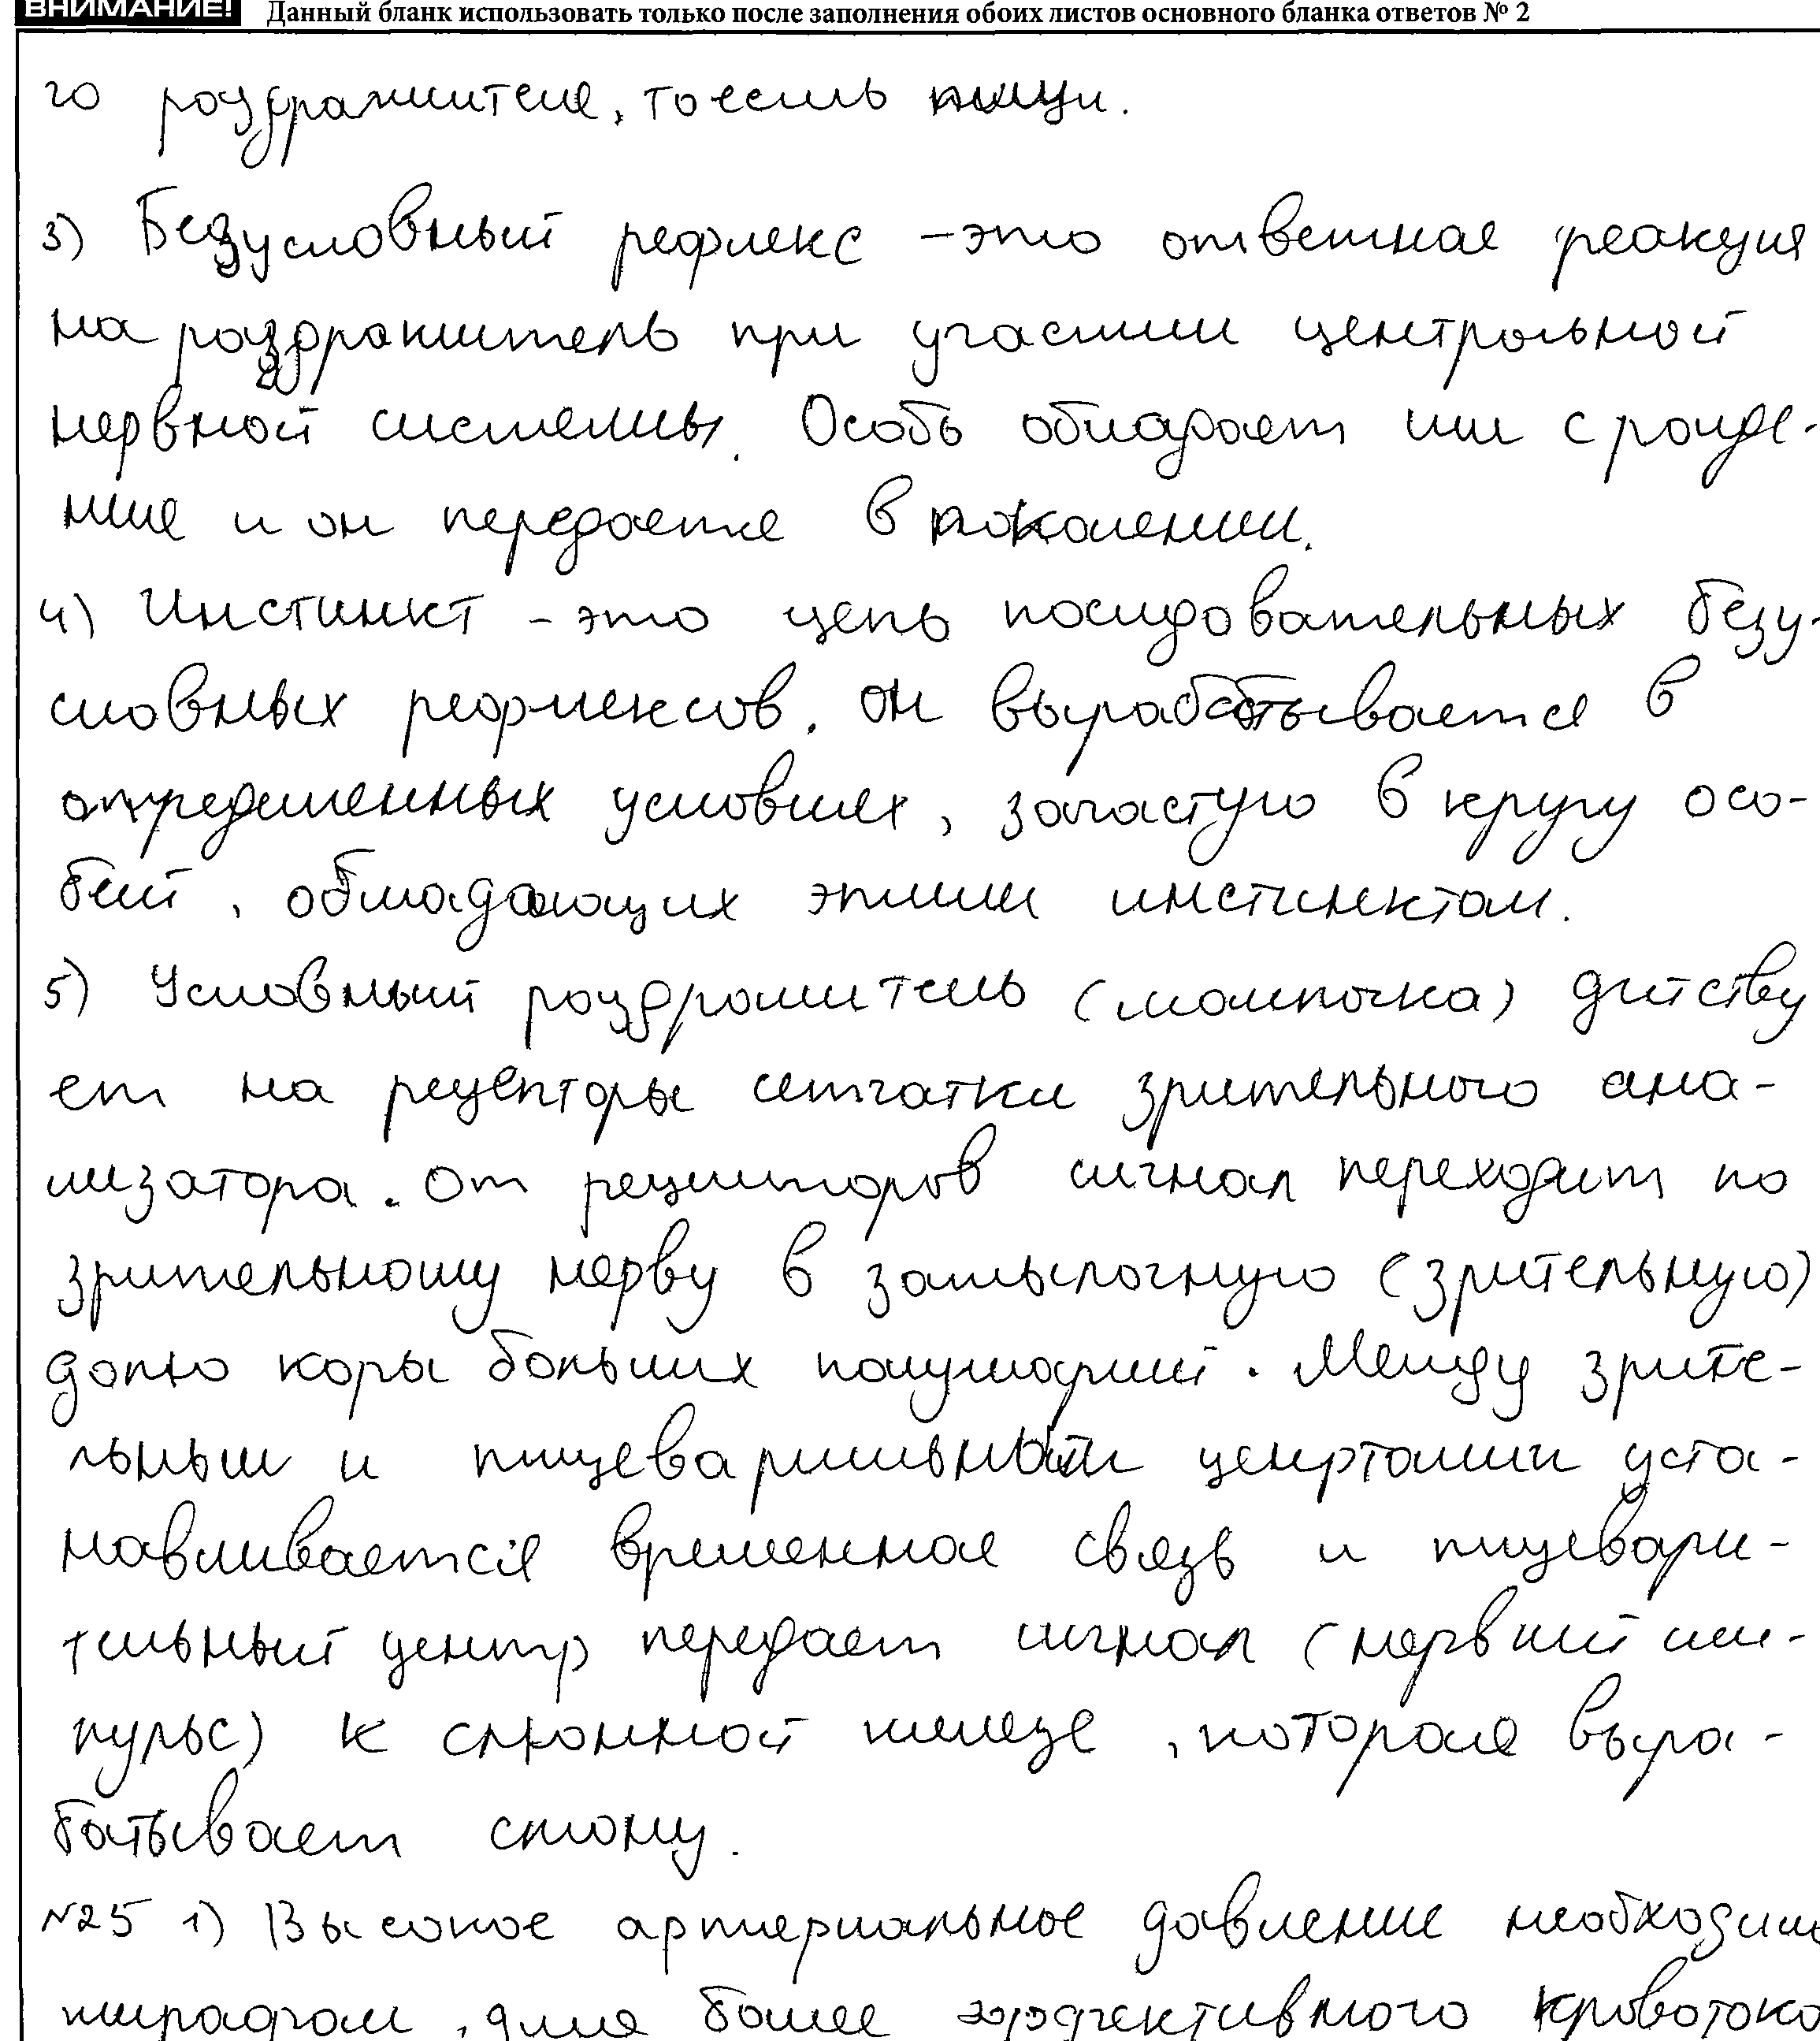 ВНИМАНИЕ! Данный бланк использовать только после заполнения обоих листов основного бланка ответов № 2
го раздражителя, то есть пищи.
3) Безусловный рефлекс – это ответная реакция
на раздражитель при участии центральной
нервной системы. Особь обладает им с рожде-
ния и он передается в поколении.
4) Инстинкт – это цепь последовательных безу-
словных рефлексов, он вырабатывается в
определенных условиях, зачастую в кругу осо-
бей, обладающих этим инстинктом.
5) Условный раздражитель (лампочка) действу
ет на рецепторы сетчатки зрительного ана-
лизатора. От рецепторов сигнал переходит по
зрительному нерву в затылочную (зрительную)
долю коры больших полушарий. Между зрите-
льным и пищеварительным ценртами уста-
навливается временная связь и пищевари-
тельный центр передает сигнал (нервный им-
пульс) к слюнной железе, которая выра-
батывает слюну.
№25 1) Высокое артериальное давление необходимо
жирафам, для более эффективного кровотока